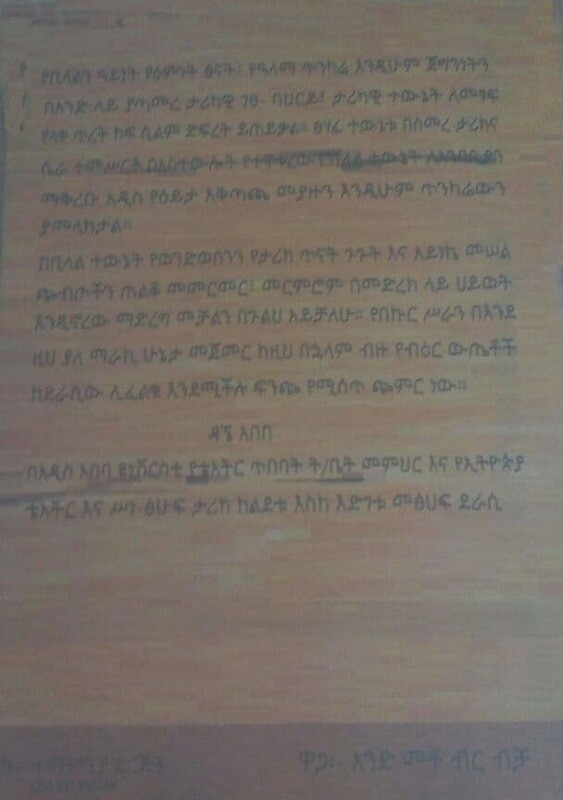 የቢላልን ዓይነት የዕምነት ፅናት፣ የዓላማ ጥንካሬ እንዲሁም ጀግንነትን
በአንድ ላይ ያጣመረ ታሪካዊ ገፀ- ባህርይ፣ ታሪካዊ ተውኔት ለመፃፍ
የላቀ ጥረት ከፍ ሲልም ድፍረት ይጠይቃል። ፀሃፊ ተውኔቱ በሰመረ ታሪክና
ሴራ ተመሥርቶ የተዋቀረውን ተውኔት
ማቅረቡ አዲስ የዕይታ አቅጣጫ መያዙን እንዲሁም ጥንካሬውን
ያመለክታል።
በቢላል ተውኔት የወንድወሰንን የታሪክ ጥናት ጉጉት እና አይነኬ መሠል
ጭብጦችን ጠልቆ መመርመር፣ መርምሮም በመድረክ ላይ ህይወት
እንዲኖረው ማድረግ መቻልን በጉልህ አይቻለሁ። የበኩር ሥራን በእንደ
ዚህ ያለ ማራኪ ሁኔታ መጀመር ከዚህ በኋላም ብዙ የብዕር ውጤቶች
ከደራሲው ሊፈልቁ እንደሚችሉ ፍንጭ የሚሰጥ ጭምር ነው።
ዳኜ አበበ
በአዲስ አበባ ዩኒቨርስቲ የቴአትር ጥበባት ት/ቤት መምህር እና የኢትዮጵያ
ቴአትር እና ሥነ ፅሁፍ ታሪክ ከልደቱ እስከ እድገቱ መፅሀፍ ደራሲ
ዋጋ፡- አንድ መቶ ብር ብቻ